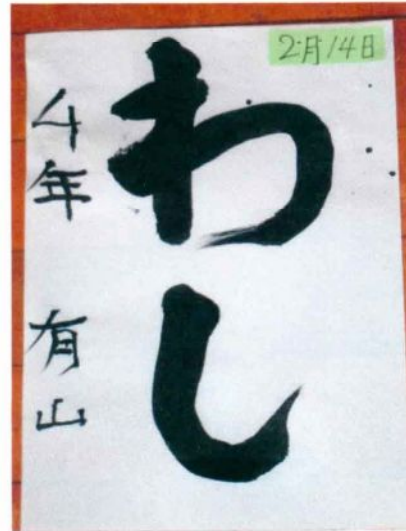 2月14日
わし
4年 有山